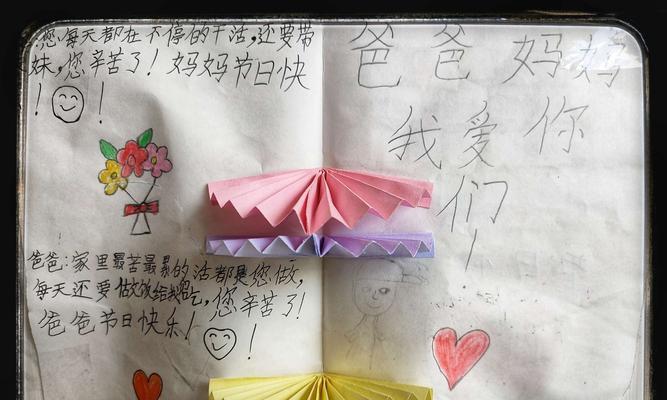 您每天都在不停的干活,还要带
妹,您辛苦了!妈妈节日快
!!
爸爸:家里最苦最累的活都是您做,
每天还要做饭给我吃,您辛苦了!
爸爸节日快乐!
!
爸爸妈妈
我爱你
们!